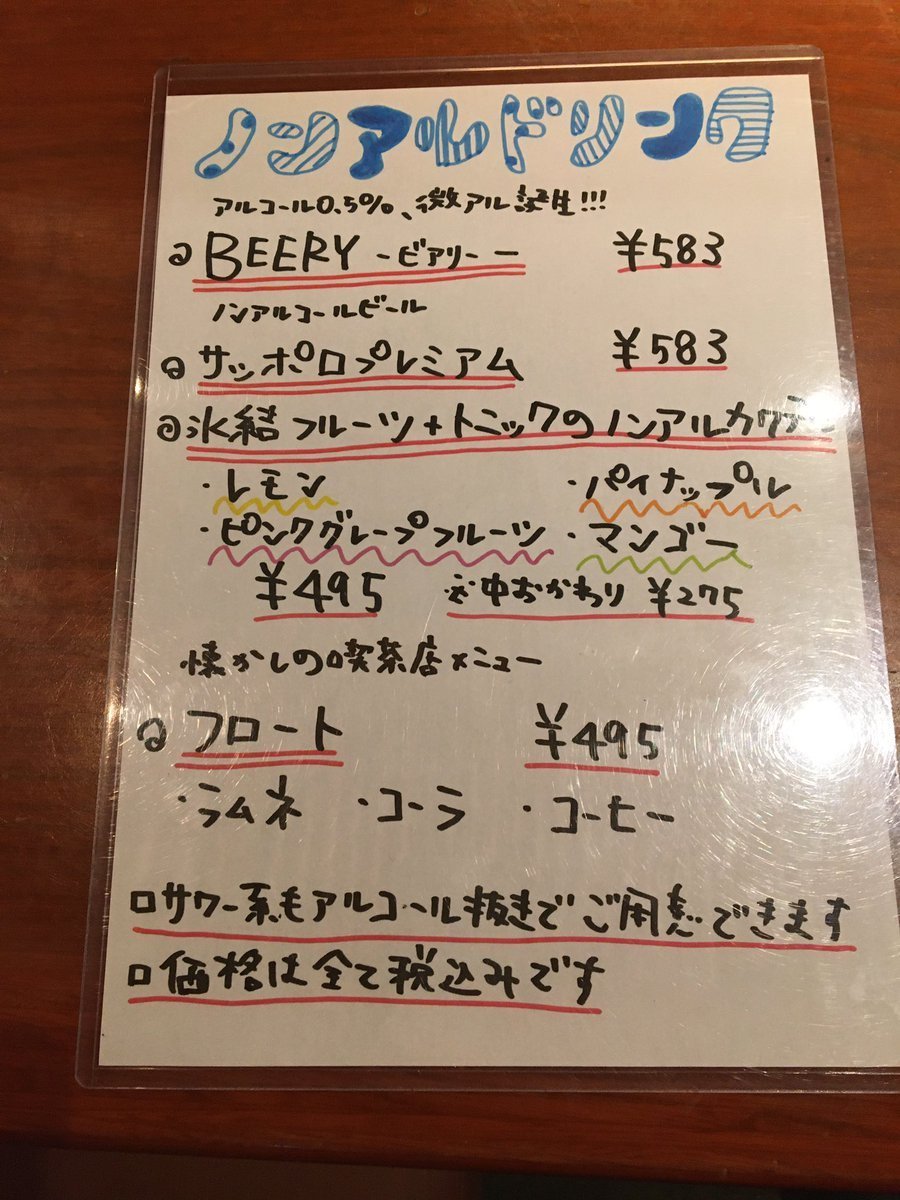 ノンアルドリンク
アルコール0.5%、微アル誕生!!!
BEERY -ビアリー- ¥583
ノンアルコールビール
サッポロプレミアム ¥583
氷結フルーツ+トニックのノンアルカクテル
・レモン ・パイナップル
・ピンクグレープフルーツ ・マンゴー
¥495 ※中おかわり ¥275
懐かしの喫茶店メニュー
フロート ¥495
・ラムネ ・コーラ ・コーヒー
□サワー系もアルコール抜きでご用意できます
□価格は全て税込みです